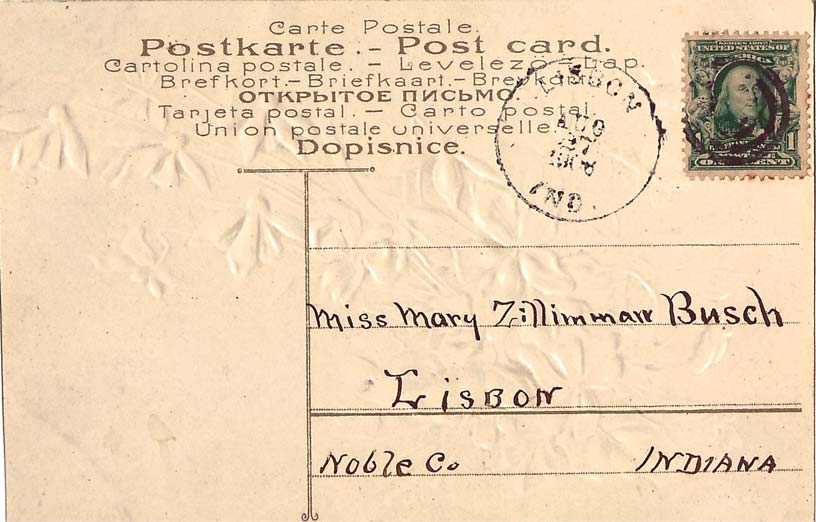 Carte Postale.
Postkarte. – Post card.
Cartolina postale. – Levelező-Lap.
Brefkort. – Briefkaart. – Brevkort.
ОТКРЫТОЕ ПИСЬМО.
Tarjeta postal. – Carto postal.
Union postale universelle.
Dopisnice.
LISBON
AUG
27
IND.
SERIES 1902
UNITED STATES OF
AMERICA
1
ONE CENT
Miss Mary Zillimman Busch
LISBON
Noble Co INDIANA